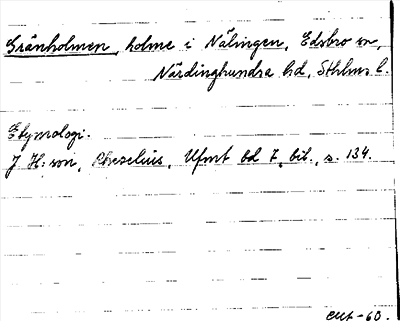 Gränholmen, holme i Nälingen, Edsbro sn,
Närdinghundra hd, Sthlms l.
Etymologi.
J H:son, Rhezelius, Ufmt bd 7, bil., s. 134.